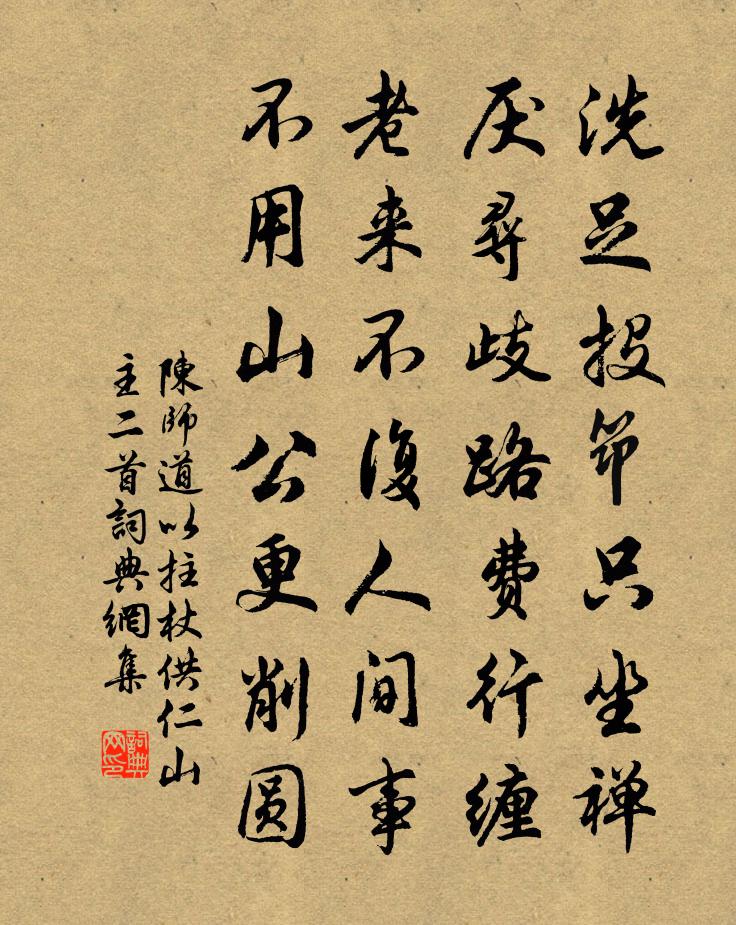 洗足投筇只坐禅
厌尋歧路費行缠
老来不復人间事
不用山公更削圆
陳師道以拄杖供仁山
主二首詞典網集
詞典网印